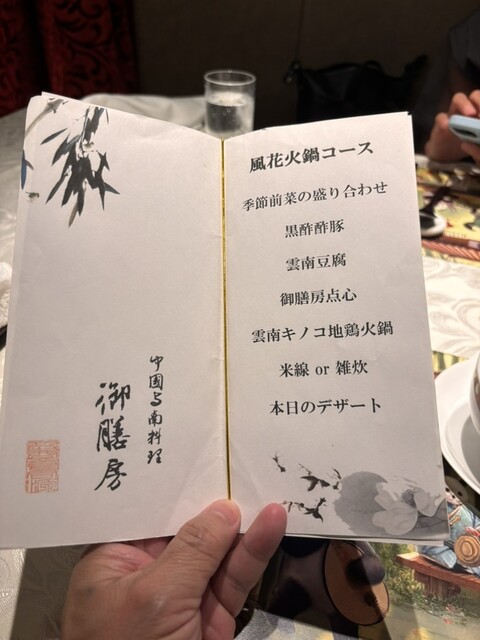 風花火鍋コース
季節前菜の盛り合わせ
黒酢酢豚
雲南豆腐
御膳房点心
雲南キノコ地鶏火鍋
米線 or 雑炊
本日のデザート
御膳房